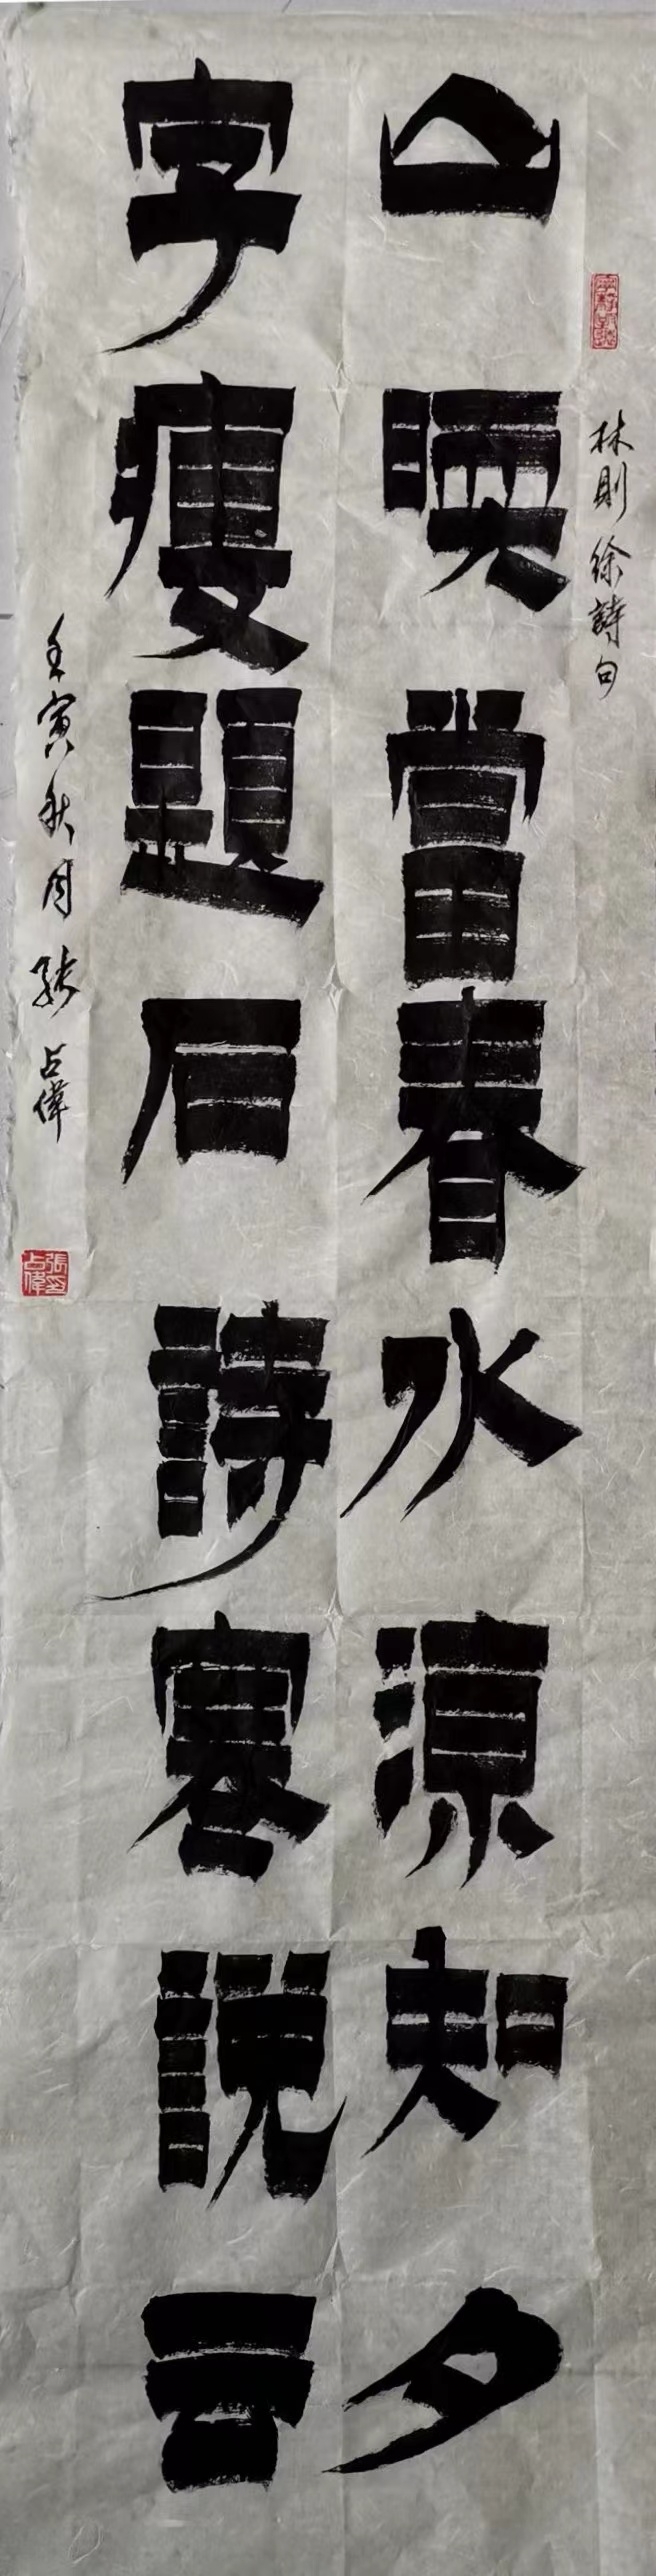 寧靜致遠
林則徐詩句
山㬉當春水涼知夕
字瘦題石詩寒說云
壬寅秋月張占偉
張印占偉